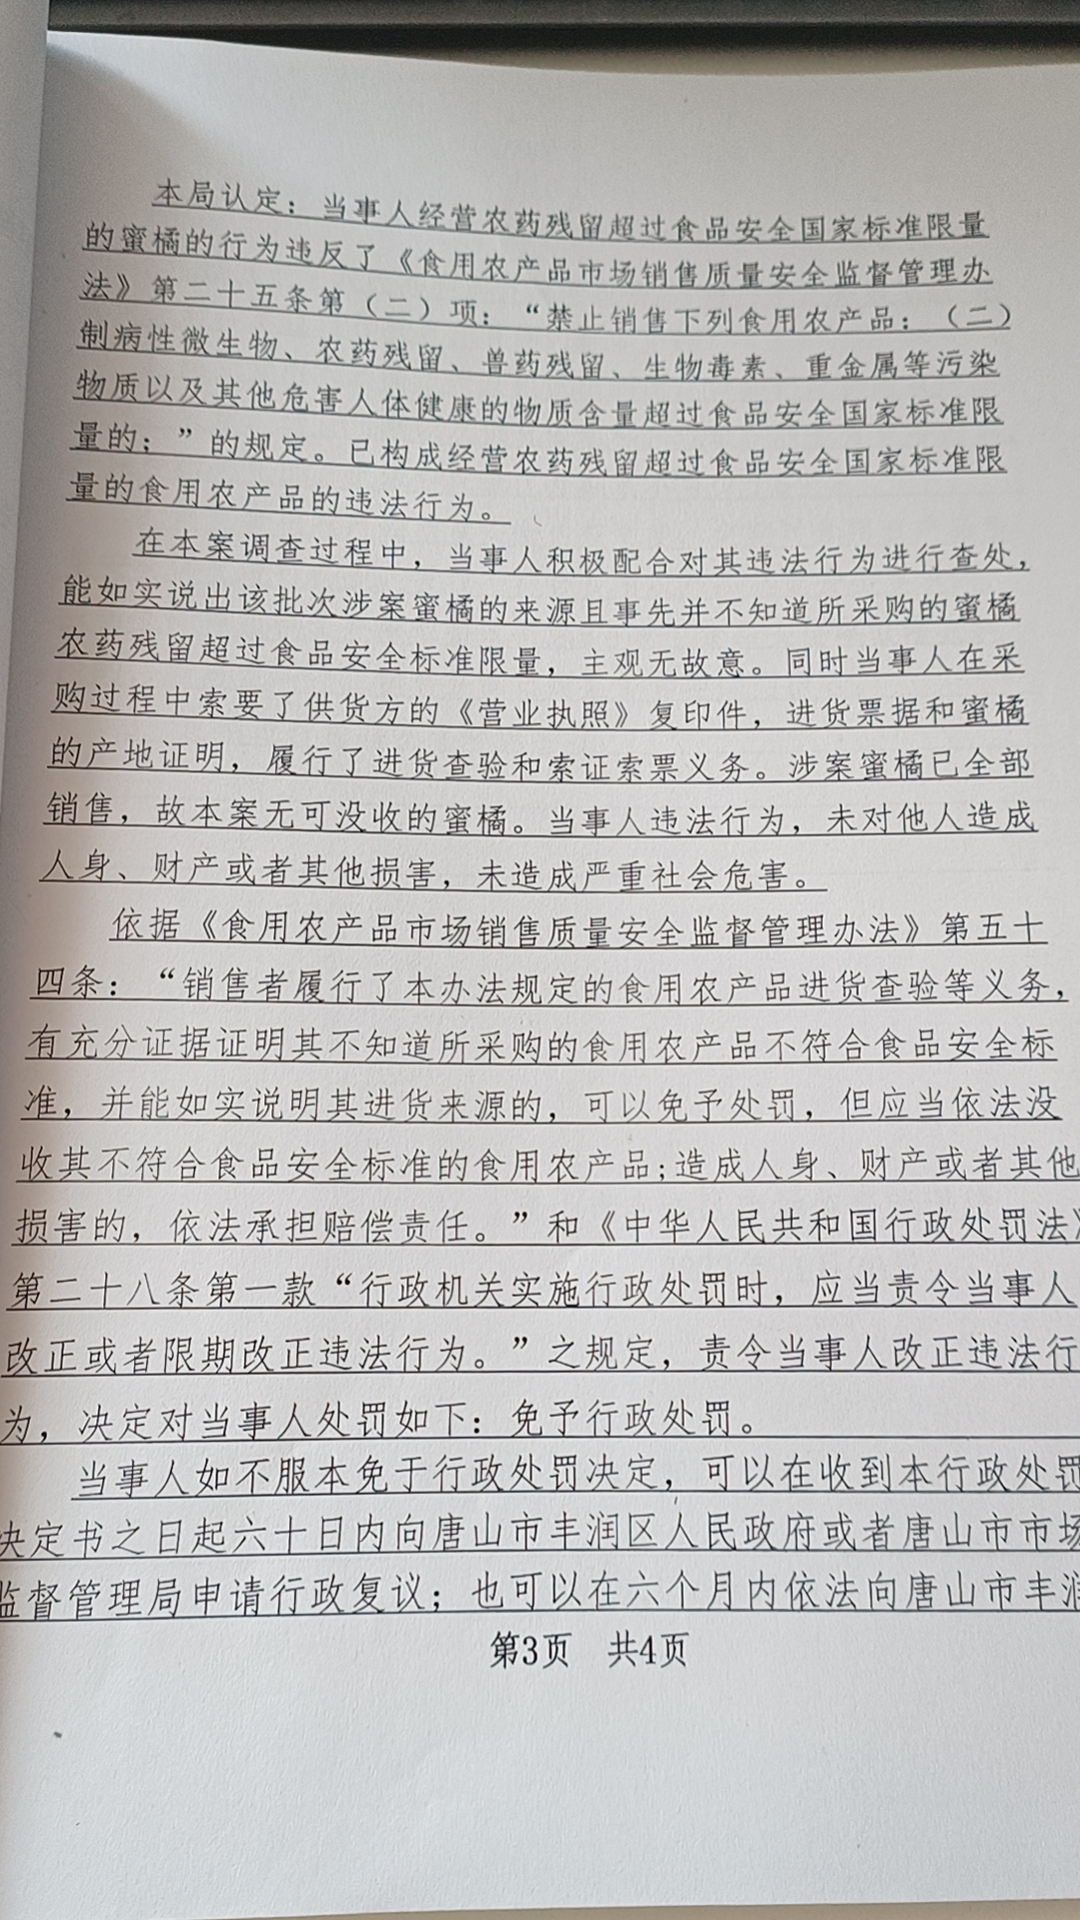 本局认定：当事人经营农药残留超过食品安全国家标准限量
的蜜橘的行为违反了《食用农产品市场销售质量安全监督管理办
法》第二十五条第（二）项：“禁止销售下列食用农产品：（二）
制病性微生物、农药残留、兽药残留、生物毒素、重金属等污染
物质以及其他危害人体健康的物质含量超过食品安全国家标准限
量的；”的规定。已构成经营农药残留超过食品安全国家标准限
量的食用农产品的违法行为。
在本案调查过程中，当事人积极配合对其违法行为进行查处，
能如实说出该批次涉案蜜橘的来源且事先并不知道所采购的蜜橘
农药残留超过食品安全标准限量，主观无故意。同时当事人在采
购过程中索要了供货方的《营业执照》复印件，进货票据和蜜橘
的产地证明，履行了进货查验和索证索票义务。涉案蜜橘已全部
销售，故本案无可没收的蜜橘。当事人违法行为，未对他人造成
人身、财产或者其他损害，未造成严重社会危害。
依据《食用农产品市场销售质量安全监督管理办法》第五十
四条：“销售者履行了本办法规定的食用农产品进货查验等义务，
有充分证据证明其不知道所采购的食用农产品不符合食品安全标
准，并能如实说明其进货来源的，可以免予处罚，但应当依法没
收其不符合食品安全标准的食用农产品;造成人身、财产或者其他
损害的，依法承担赔偿责任。”和《中华人民共和国行政处罚法》
第二十八条第一款“行政机关实施行政处罚时，应当责令当事人
改正或者限期改正违法行为。”之规定，责令当事人改正违法行
为，决定对当事人处罚如下：免予行政处罚。
当事人如不服本免于行政处罚决定，可以在收到本行政处罚
决定书之日起六十日内向唐山市丰润区人民政府或者唐山市市场
监督管理局申请行政复议；也可以在六个月内依法向唐山市丰润
第3页 共4页